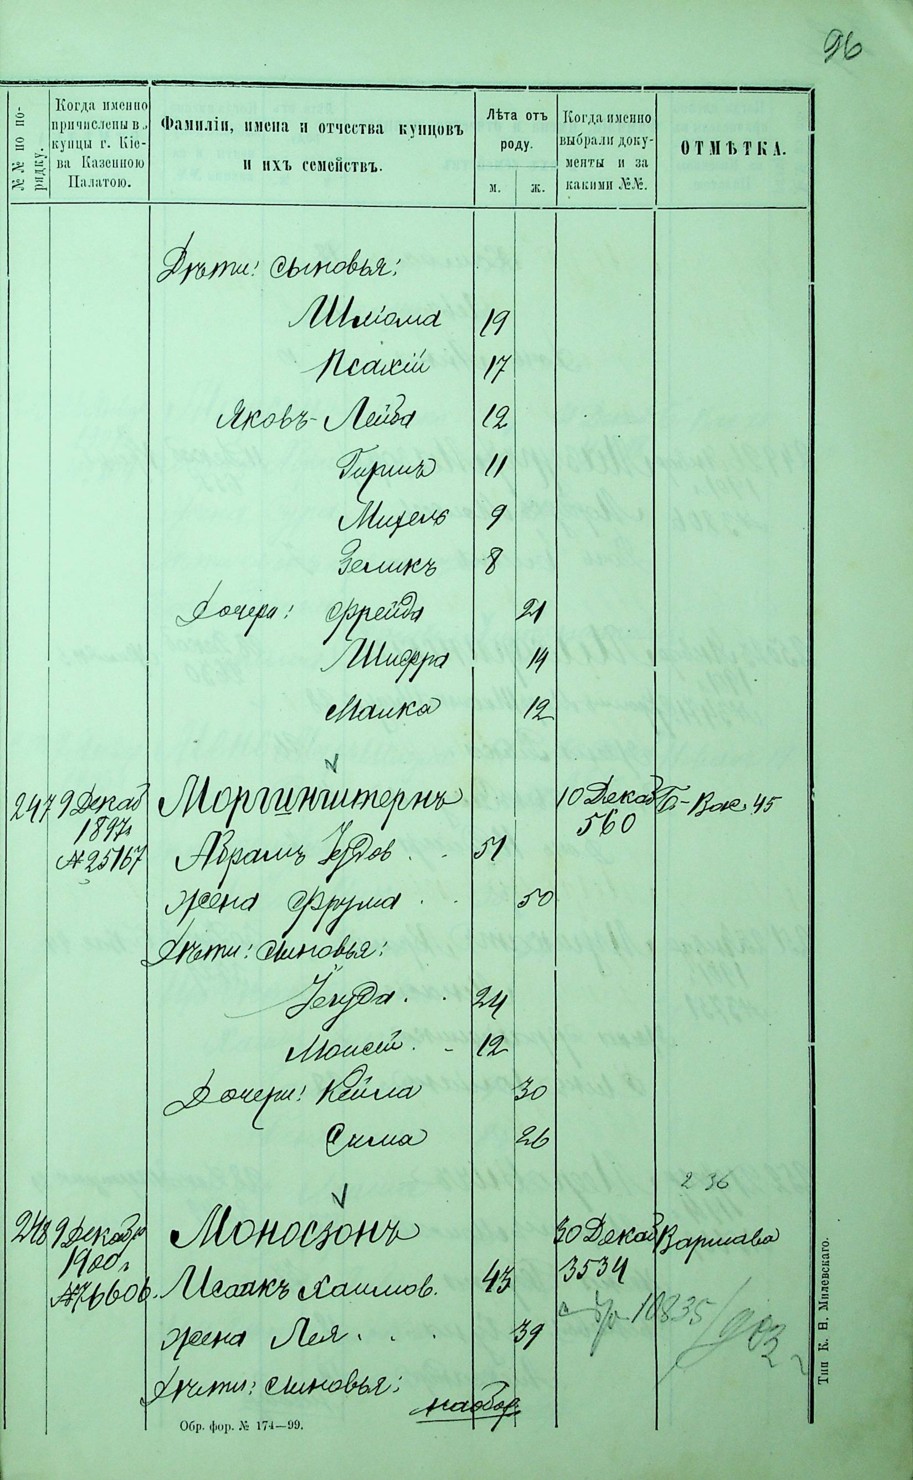 96
№№ по по-
рядку.
Когда именно
причислены въ
купцы г. Кіе-
ва Казенною
Палатою.
Фамиліи, имена и отчества купцовъ
и ихъ семействъ.
Лѣта отъ
роду.
м. ж.
Когда именно
выбрали доку-
менты и за
какими №№.
ОТМѢТКА.
Дѣти: сыновья:
Шліома 19
Псахій 17
Яковъ-Лейба 12
Гиршъ 11
Михель 9
Зеликъ 8
Дочери: Фрейда 21
Шифра 14
Малка 12
247 9 Декаб Моргинштернъ 10 Декаб Б-Вас 45
1897г 560
№25167 Абрамъ Іегудов 51
жена Фрума 50
Дѣти: сыновья:
Іегуда 24
Моисей 12
Дочери: Кейла 30
Сима 26
2 36
248 9 Декабр Моносзонъ 30 Декаб Варшава
1900г 3534
№76606. Исаакъ Хаимов. 43
10835/902
жена Лея 39
Дѣти: сыновья:
наобор
Обр. фор. № 174—99.
Тип К. Н. Милевскаго.